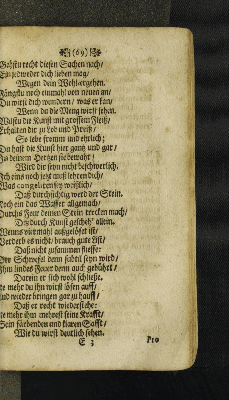 (69)
Gehstu recht diesen Sachen nach/
Ein jedweder dich lieben mag/
Wegen dein Wohl-ergehen.
Fängstu noch einmahl von neuen an/
Du wirst dich wundern/ was er kan/
Wenn du die Meng wirst sehen.
Wilstu die Kunst mit grossem Fleiß/
Erhalten dir zu Lob und Preiß/
So lebe fromm und ehrlich;
Du hast die Kunst hier gantz und gar/
In deinem Hertzen sie bewahr/
Wird dir seyn nicht beschwerlich.
Ich eins noch jetzt muß lehren dich/
Was congelieren sey weißlich/
Daß durchsichtig werd der Stein.
Koch ein das Wasser allgemach/
Durchs Feur deinen Stein trecken mach/
Diß durch Kunst gescheh' allein.
Wenns nun mahl auffgelöset ist/
Verderb es nicht/ brauch gute List/
Daß nicht zusammen fliesse
Der Schwefel denn subtil seyn wird/
Ihm lindes Feuer denn auch gebührt/
Darein er sich wohl schliesse.
Je mehr du ihn wirst lösen auff/
und wieder bringen gar zu hauff/
Daß er recht wiederstehe:
Je mehr ihm mehret seine Krafft/
Sein färbenden und klaren Safft/
Wie du wirst deutlich sehen.
E 3 Pro